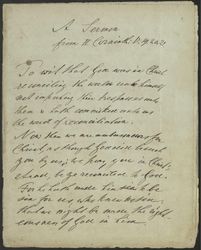 A Sermon
from II Corinth. V. 19.20.21
To wit that God was in Christ
reconciling the world unto himself,
not imputing their trespasses unto
them & hath committed unto us
the word of reconciliation.
Now then we are ambassadors for
Christ as though God did beseech
you by us; we pray you in Christ's
stead, be ye reconciled to God.
For he hath made him to be
sin for us, who knew no sin,
that we might be made the right-
eousness of God in him